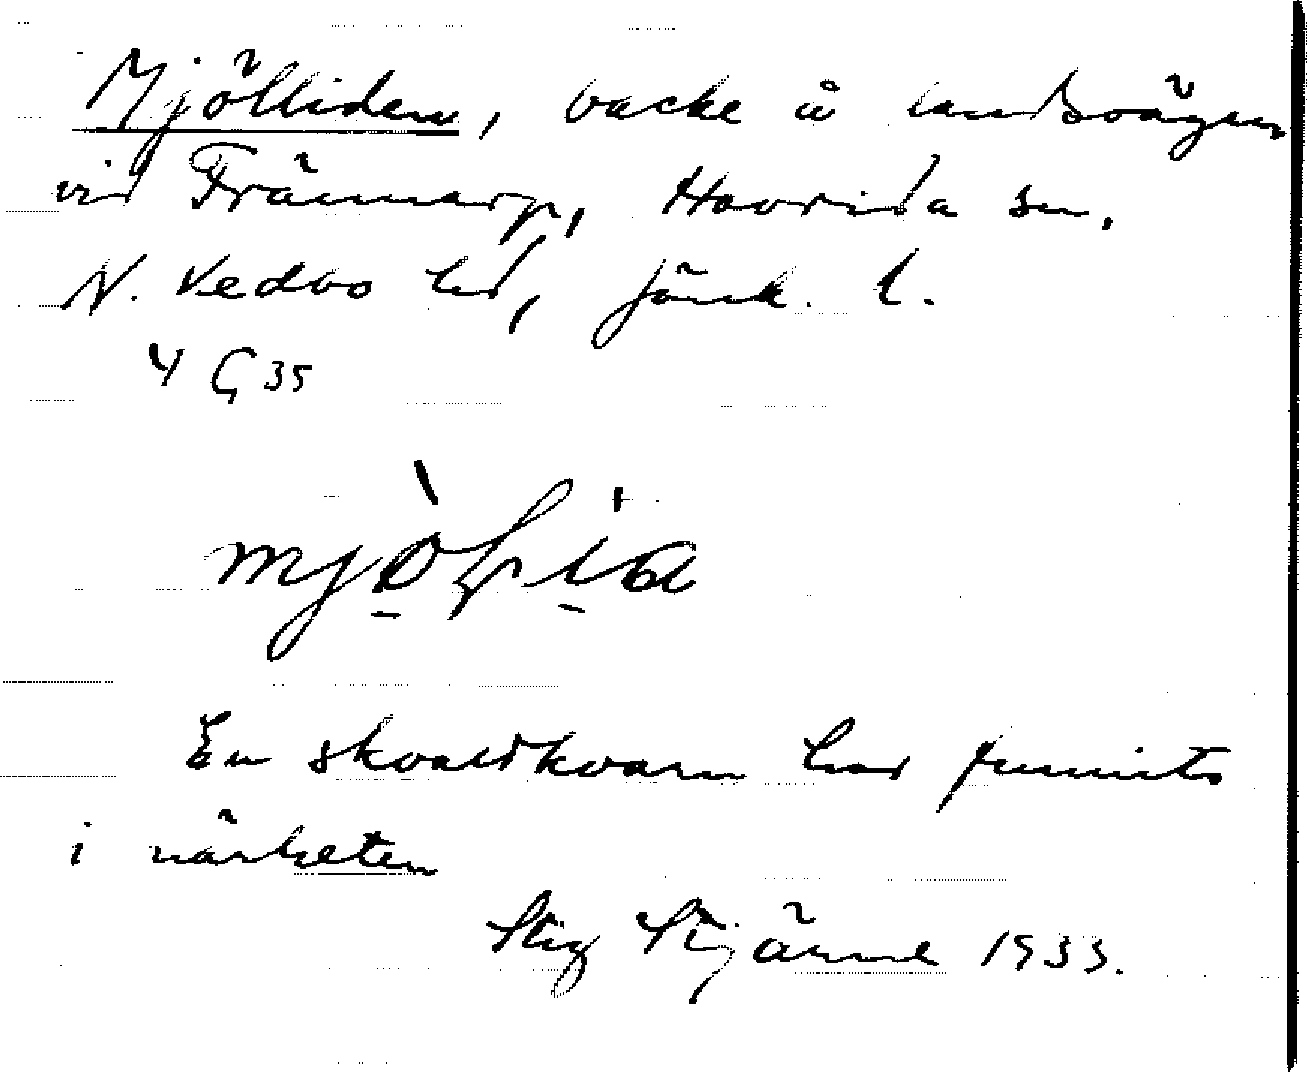 Mjölliden, backe å landsvägen
vid Främmarp, Haurida sn,
N. Vedbo hd, Jönk. l.
4 G 35
En skvaldkvarn har funnits
i närheten
Stig Stjärne 1933.